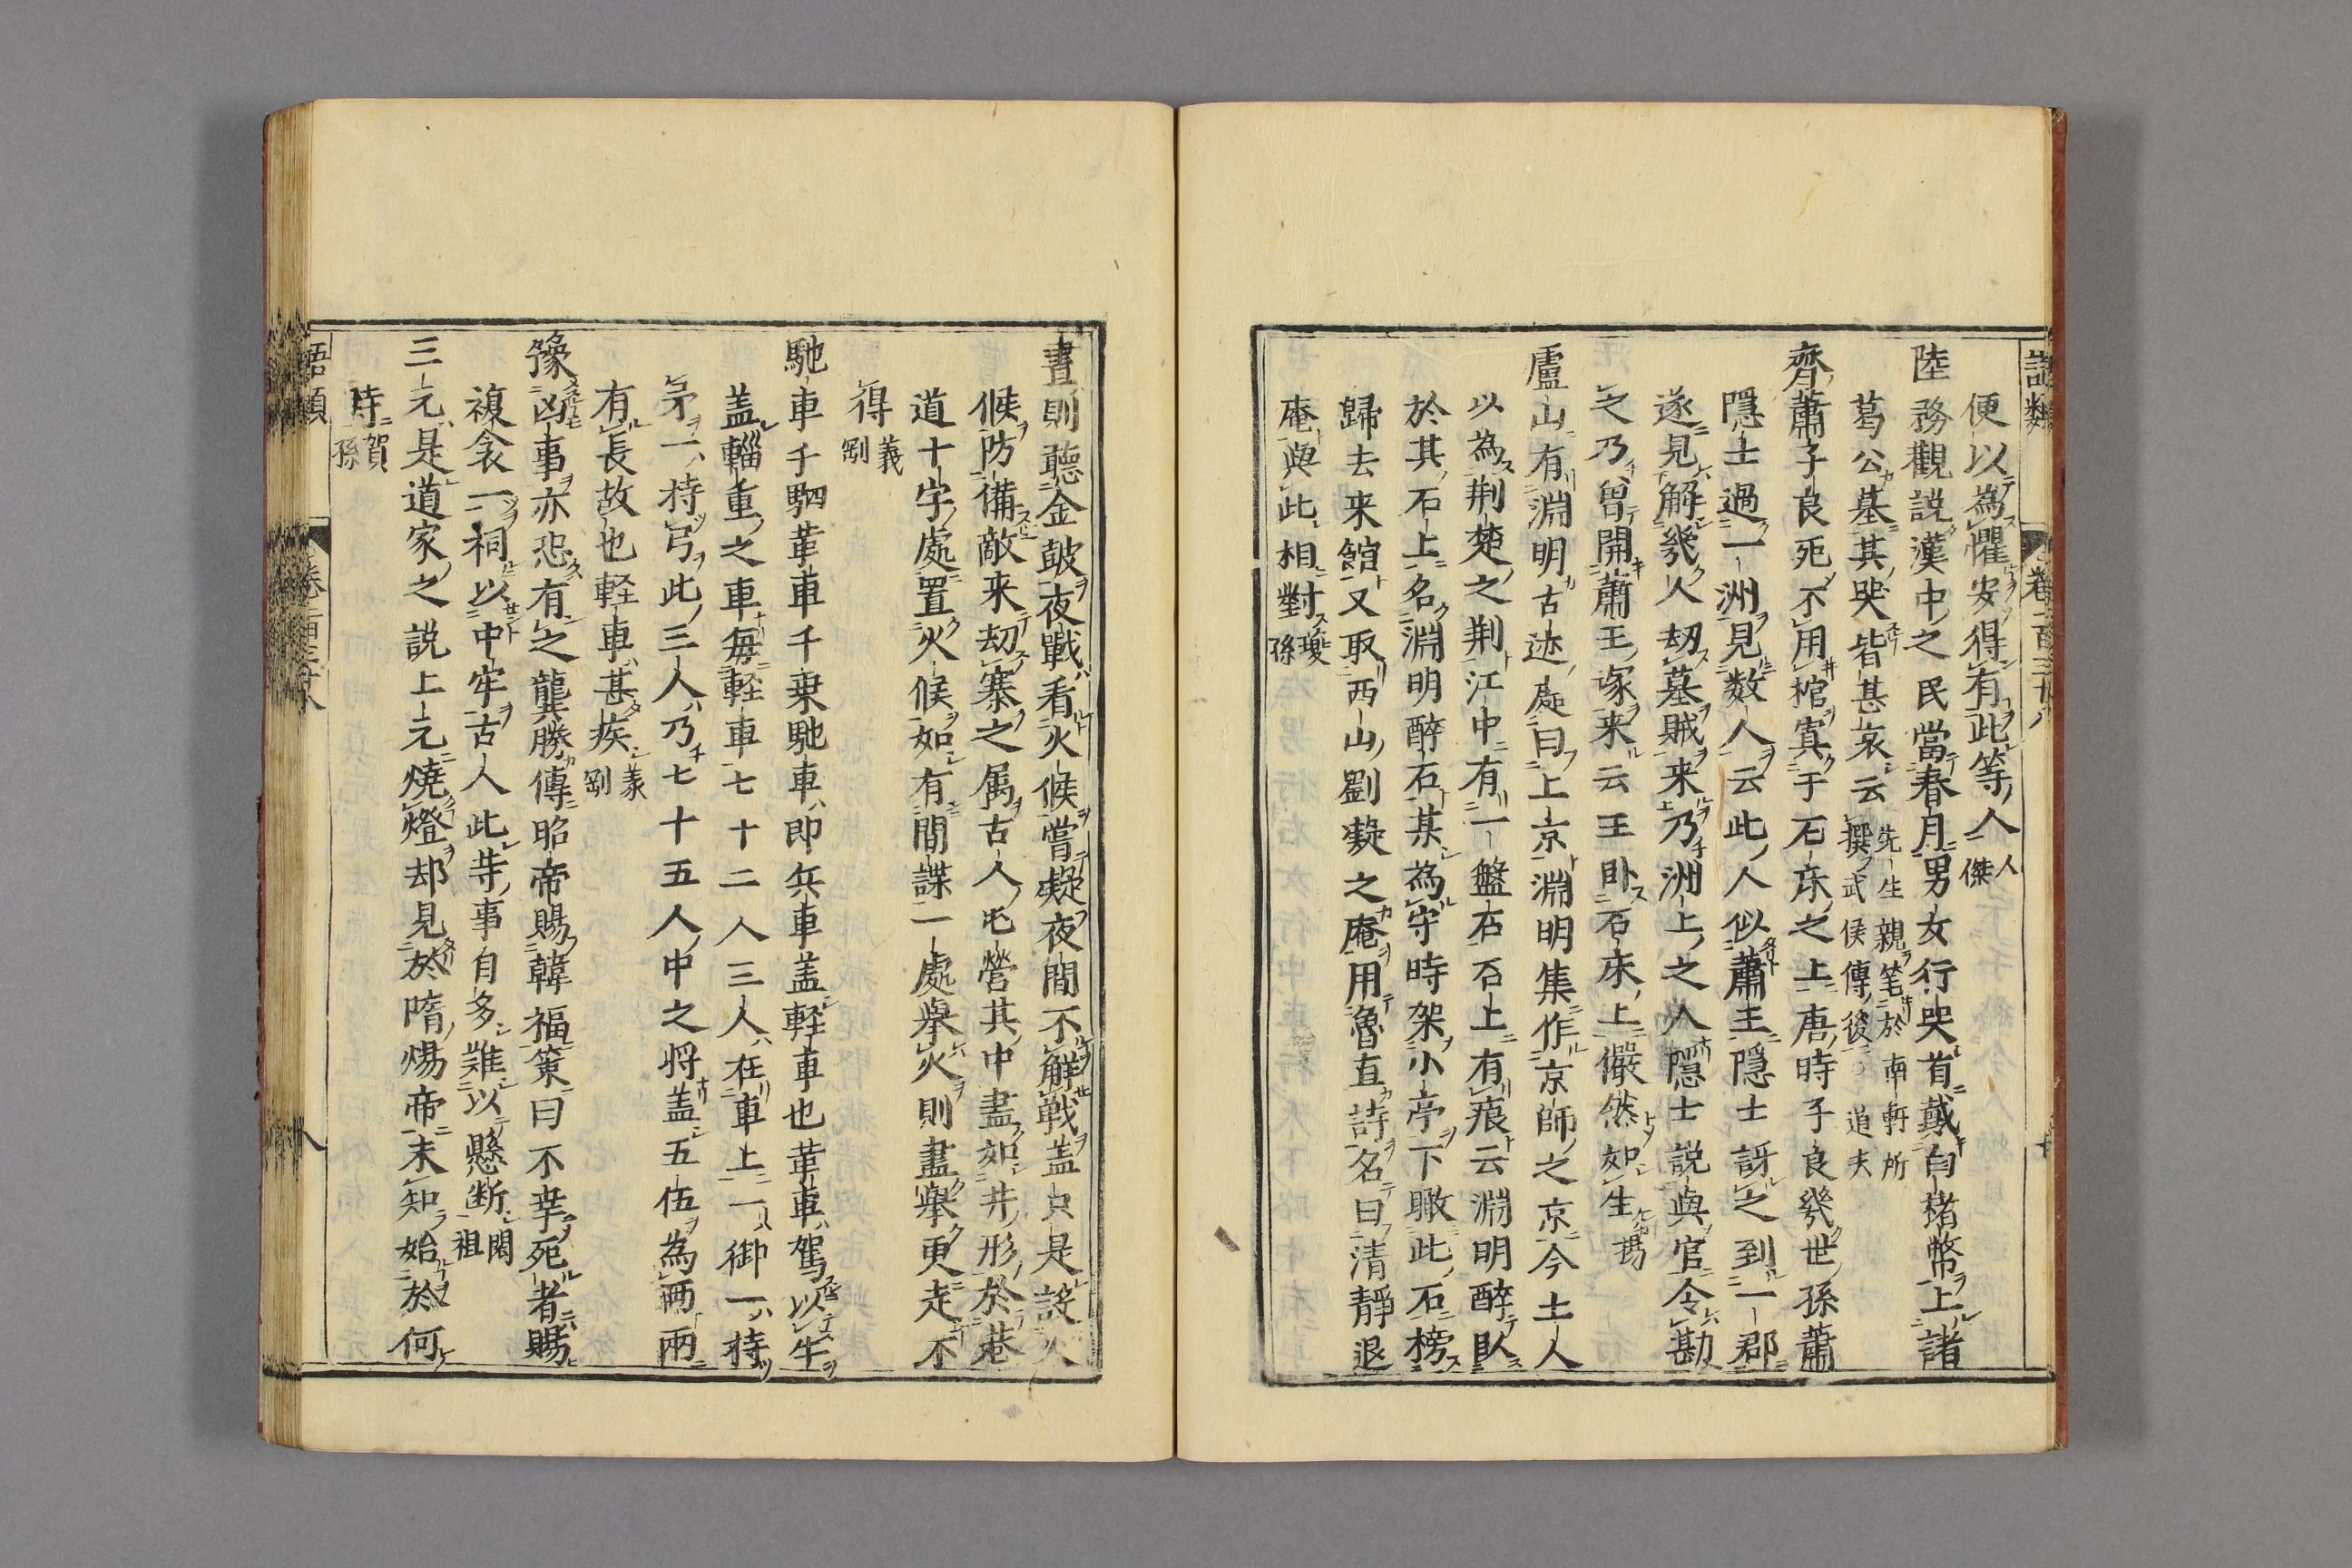 便以為懼安得有此等人 人傑
陸務觀説漢中之民當春月男女行哭首戴白楮幣上諸
葛公墓其哭皆甚哀云 先生親笔於南軒所撰武侯傳後 追夫
齊蕭子良死不用棺寘于石床之上唐時子良幾世孫蕭
隱士過一洲見数人云此人似蕭王隱士訝之到一郡
遂見解幾人刼墓賊来乃洲上之人隱士説與官令勘
之乃曽開蕭王塚来云王卧石床上儼然如生 揚
廬山有淵明古迹處曰上京淵明集作京師之京今土人
以為荆楚之荆江中有一盤石石上有痕云淵明醉臥
於其石上名淵明醉石某為守時架小亭下瞰此石榜
歸去来館又取西山劉凝之庵用魯直詩名曰清靜退
庵與此相對 孫瓊
晝則聽金皷夜戰看火候嘗疑夜間不解戦盖只是設火
候防備敵来刧寨之属古人屯營其中盡如井形於巷
道十字處置火候如有間諜一處舉火則盡舉更走不
得 義剛
馳車千駟革車千乗馳車即兵車盖軽車也革車駕以牛
盖輜重之車毎軽車七十二人三人在車上一御一持
矛一持弓此三人乃七十五人中之将盖五伍為両両
有長故也軽車甚疾 義剛
豫凶事亦恐有之龔勝傳昭帝賜韓福策曰不幸死者賜
複衾一祠以中牢古人此等事自多難以懸断 閎祖
三元是道家之説上元燒燈却見於隋煬帝未知始於何
時 賀孫